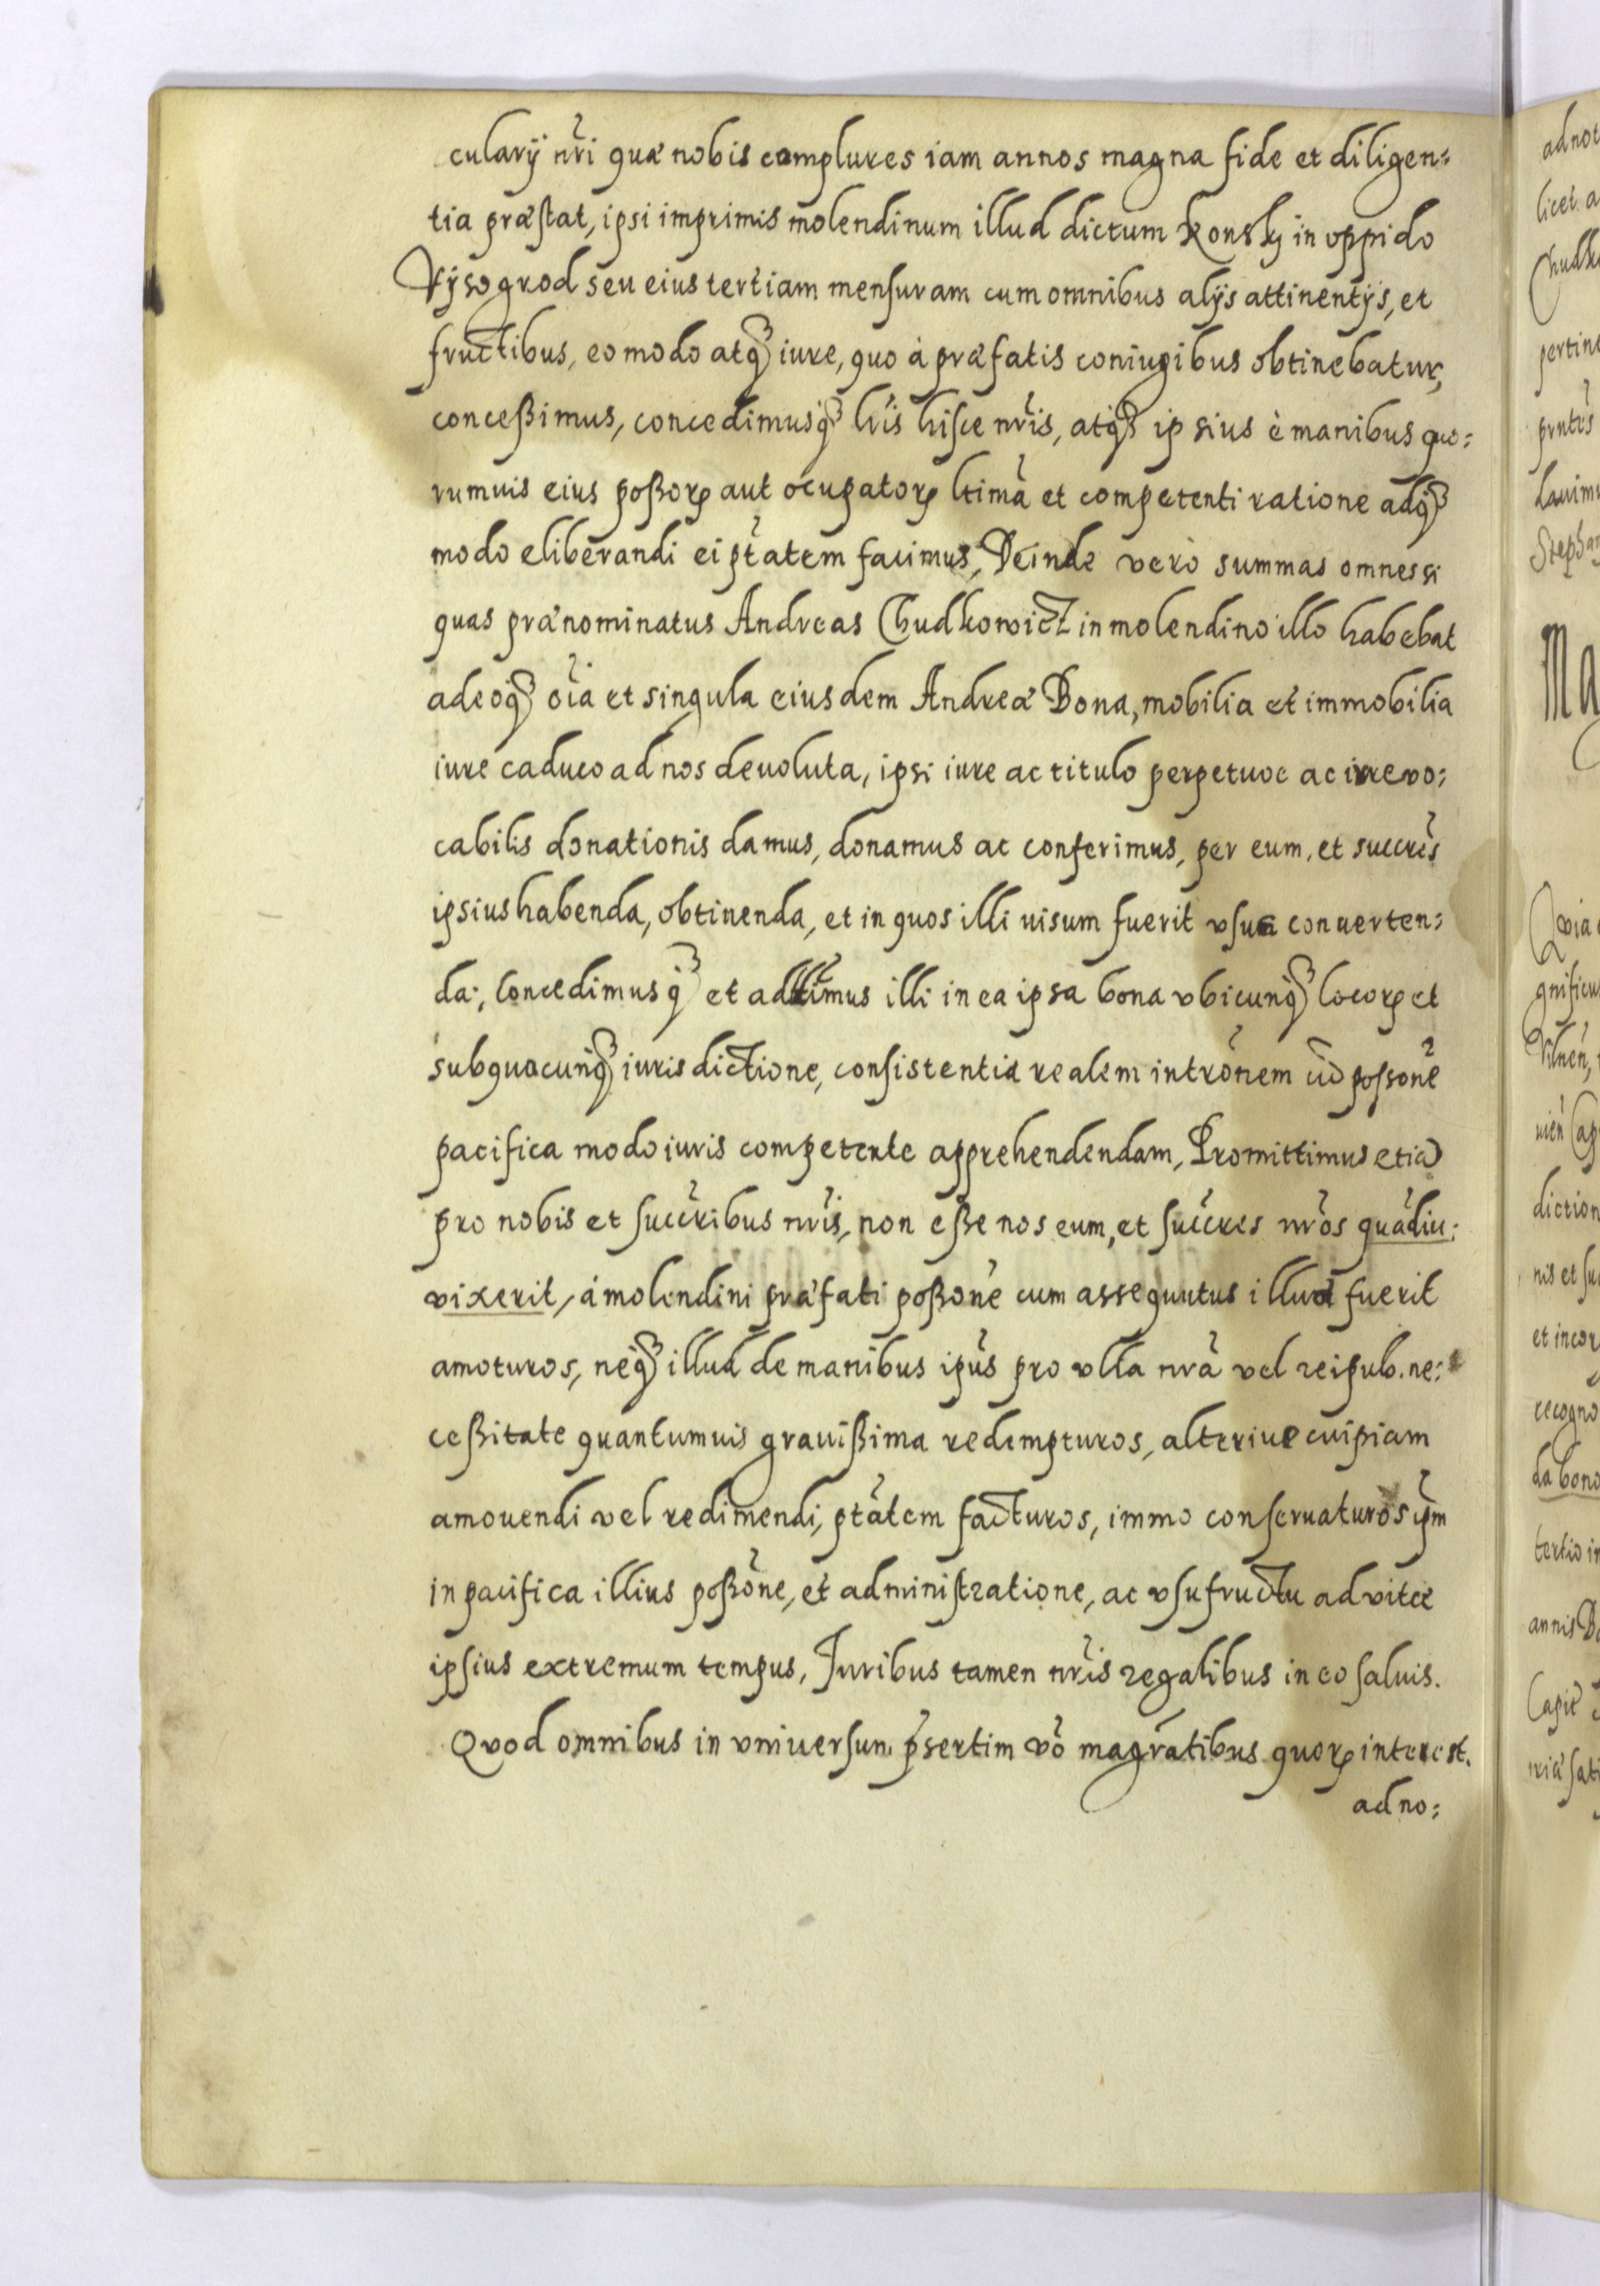 cularÿ nr̃i quæ nobis complures iam annos magna fide et diligen=
tia præstat, ipsi imprimis molendinum illud dictum Konsky in oppido
Vÿsogrod seu eius tertiam mensuram cum omnibus alÿs attinentÿs, et
fructibus, eo modo atq3 iure, quo à præfatis coniugibus obtinebatur,
conceßimus, concedimusq3 lr̃is hisce nr̃is, atq3 ipsius è manibus quo=
rumuis eius poßorꝝ aut ocupatorꝝ ltimã et competenti ratione adq3
modo eliberandi ei ptãtem facimus, Deinde verò summas omnes si
quas prænominatus Andreas Chudkowicz in molendino illo habebat
adeoq3 oĩa et singula eiusdem Andreæ Bona, mobilia et immobilia
iure caduco ad nos deuoluta, ipsi iure ac titulo perpetuoc ac irreuo=
cabilis donationis damus, donamus ac conferimus, per eum, et succr̃es
ipsius habenda, obtinenda, et in quos illi uisum fuerit vsus conuerten=
da:, Concedimusq3 et illi in ea ipsa bona vbicunq3 locorꝝ et
subquacunq3 iurisdictione, consistentia realem intrõnem poßonẽ
pacifica modo iuris competente apprehendendam, Promittimus etiã
pro nobis et succr̃ibus nr̃is, non eße nos eum, et succr̃es nr̃os quãdiu=
vixerit, à molendini præfati poßonẽ cum assequutus illud fuerit
amoturos, neq3 illud de manibus ipũs pro vlla nr̃a vel reipub. ne=
ceßitate quantumuis grauißima redempturos, alteriue cuipiam
amouendi vel redimendi, ptãtem facturos, immo conseruaturos ip̃m
in pacifica illius poßõne, et administratione, ac vsufructu ad vitæ
ipsius extremum tempus, Iuribus tamen nr̃is regalibus in eo saluis.
Quod omnibus in vniuersum p̃sertim võ magr̃atibus quorꝝ interest.
adno=
adnot
licet a
Chudk
pertine
pntẽs
dauimu
Stephan
Ma
Quia
gnificu
Vilneñ,
diction
nis et su
et incor
recogno
da bono
tertio in
annis D